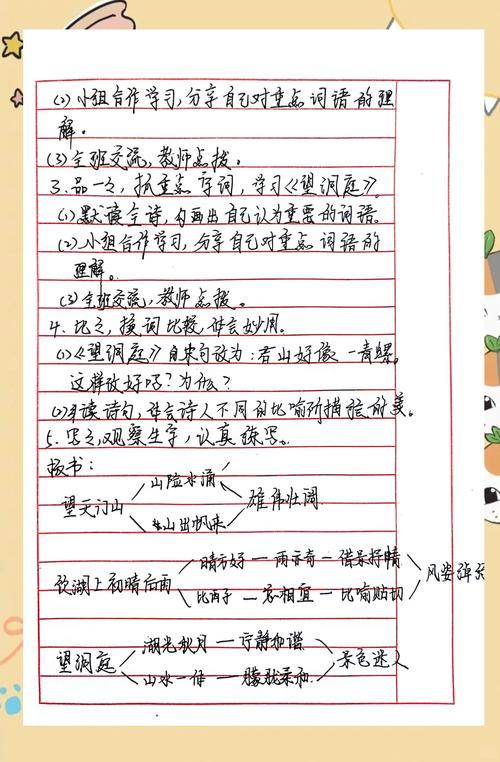 (2) 小组合作学习,分享自己对重点词语的理
解。
(3) 全班交流,教师点拨。
3. 品一品,抓重点字词,学习《望洞庭》。
(1) 默读全诗,勾画出自己认为重要的词语。
(2) 小组合作学习,分享自己对重点词语的
理解。
(3) 全班交流,教师点拨。
4. 比一比,换词比较,体会妙用。
(1)《望洞庭》末句改为:君山好像一青螺。
这样改好吗?为什么?
(2) 读诗句,体会诗人不同的比喻所描绘的美。
5. 写一写,观察生字,认真练写。
板书:
山险水涌
望天门山 雄伟壮阔
山出帆来
晴方好 — 雨亦奇 — 借景抒情
饮湖上初晴后雨 风姿绰约
比西子 — 总相宜 — 比喻贴切
湖光秋月 — 宁静和谐
望洞庭 景色迷人
山水一体 — 朦胧柔和